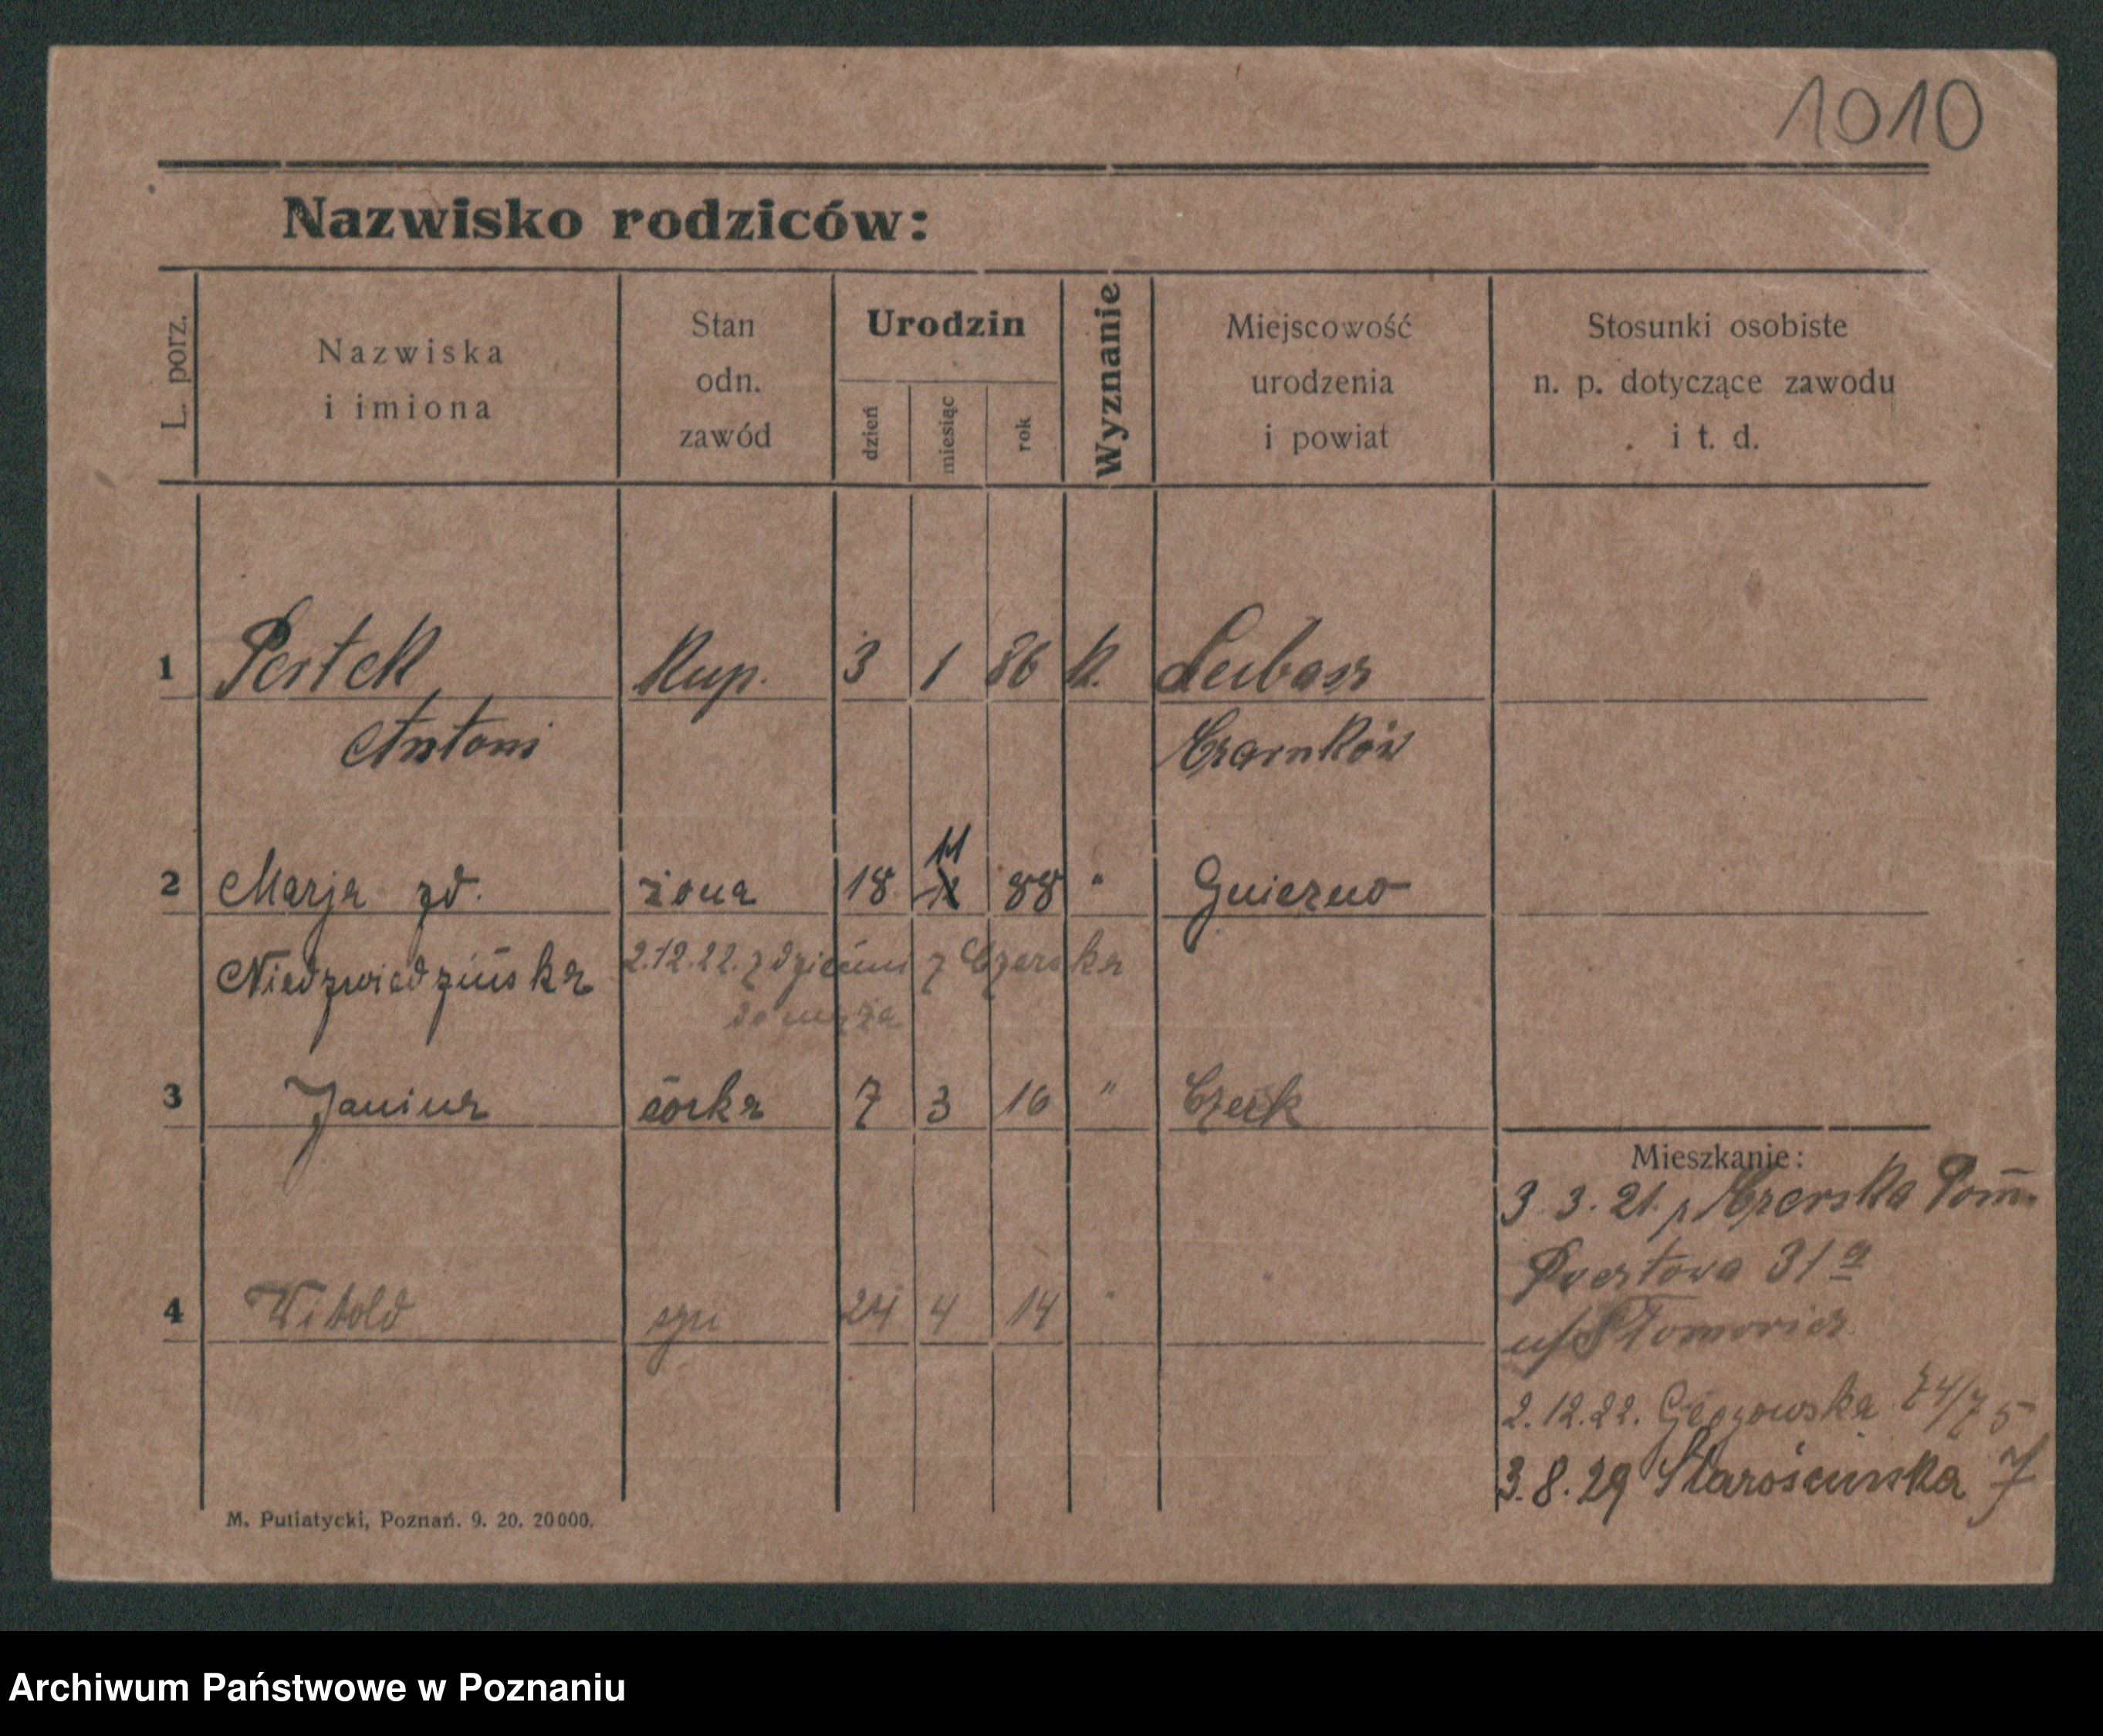 1010
Nazwisko rodziców:
L. porz.
Nazwiska
i imiona
Stan
odn.
zawód
Urodzin
dzień
miesiąc
rok
Wyznanie
Miejscowość
urodzenia
i powiat
Stosunki osobiste
n. p. dotyczące zawodu
i t. d.
1 Pertek Kup. 3 1 86 k. Lubasz
Antoni Czarnków
11
2 Marja zd. żona 18 88 " Gniezno
Niedzwiedzińska 2.12.22. z dziećmi z Czerska
do męża
3 Janina córka 7 3 10 " Czersk
Mieszkanie:
3.3.21. Czerska Pom.
31a
4 Witold syn 24 4 14 "
2.12.22. 74/75
3.8.29 Starościńska 7
M. Putiatycki, Poznań. 9. 20. 20000.
Archiwum Państwowe w Poznaniu